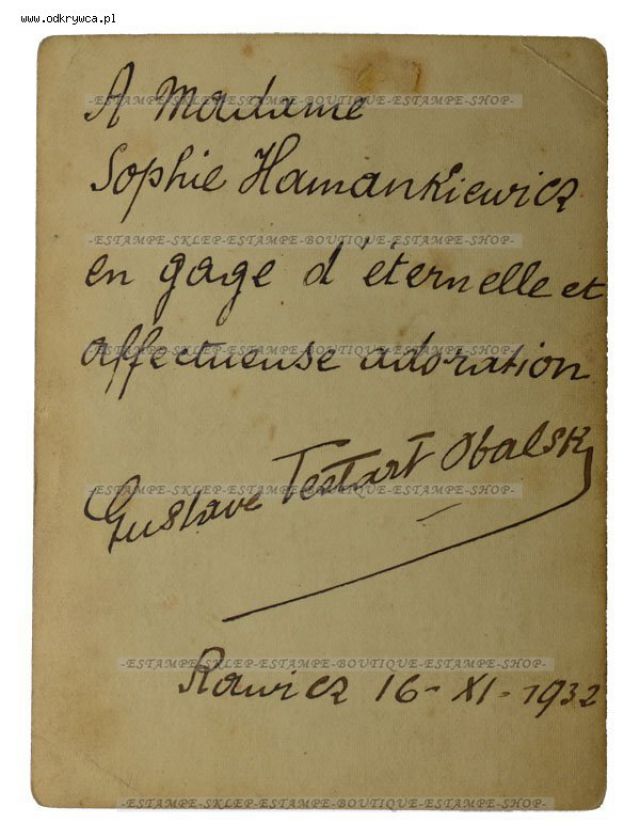 www.odkrywca.pl
A Madame
-ESTAMPE-SKLEP-ESTAMPE-BOUTIQUE-ESTAMPE-SHOP-
Sophie Hamankiewicz
-ESTAMPE-SKLEP-ESTAMPE-BOUTIQUE-ESTAMPE-SHOP-
en gage d'éternelle et
-ESTAMPE-SKLEP-ESTAMPE-BOUTIQUE-ESTAMPE-SHOP-
affectueuse adoration
Gustave Testart Obalski
-ESTAMPE-SKLEP-ESTAMPE-BOUTIQUE-ESTAMPE-SHOP-
-ESTAMPE-SKLEP-ESTAMPE-BOUTIQUE-ESTAMPE-SHOP-
Rawicz 16-XI-1932
-ESTAMPE-SKLEP-ESTAMPE-BOUTIQUE-ESTAMPE-SHOP-